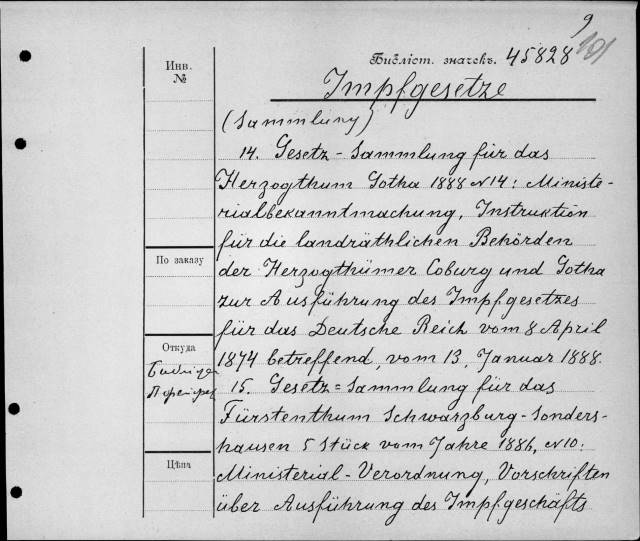 9
101
Инв.
№
Библіот. значекъ. 45828
Impfgesetze
(Sammlung)
14. Gesetz-Sammlung für das
Herzogthum Gotha 1888 N14: Ministe-
rialbekanntmachung, Instruktion
für die landräthlichen Behörden
der Herzogthümer Coburg und Gotha
zur Ausführung des Impfgesetzes
für das Deutsche Reich vom 8 April
1874 betreffend, vom 13, Januar 1888.
15. Gesetz=Sammlung für das
Fürstenthum Schwarzburg-Sonders-
hausen 5 Stück vom Jahre 1886, N10:
Ministerial-Verordnung, Vorschriften
über Ausführung des Impfgeschäfts
По заказу
Откуда
Цѣна